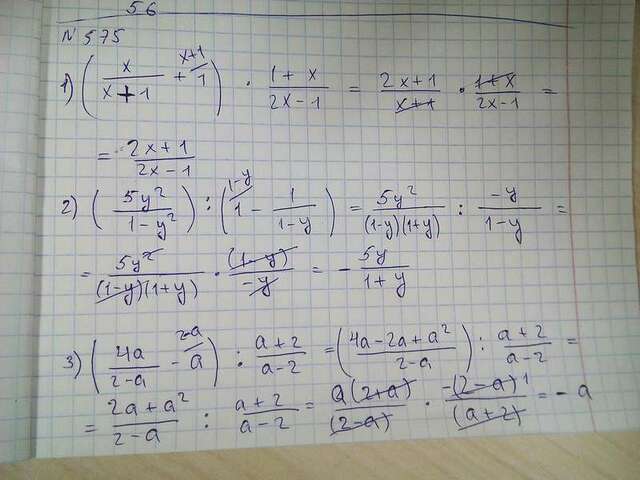 56
N 575
1) (x/(x+1) + 1/1^(x+1)) · (1+x)/(2x-1) = (2x+1)/(x+1) · (1+x)/(2x-1) =
= (2x+1)/(2x-1)
2) (5y²/(1-y²)) : (1^(1-y) - 1/(1-y)) = 5y²/((1-y)(1+y)) : -y/(1-y) =
= 5y²/((1-y)(1+y)) · (1-y)/-y = - 5y/(1+y)
3) (4a/(2-a) - a^(2-a)) : (a+2)/(a-2) = ((4a-2a+a²)/(2-a)) : (a+2)/(a-2) =
= (2a+a²)/(2-a) : (a+2)/(a-2) = a(2+a)/(2-a) · -(2-a)¹/(a+2) = -a